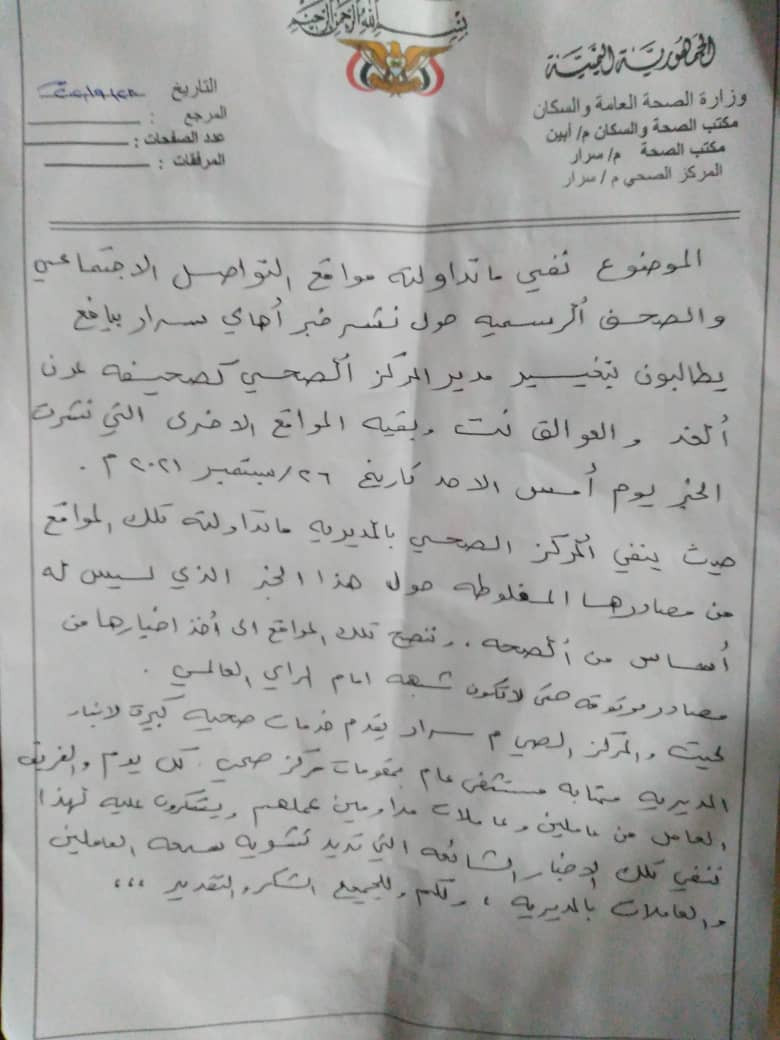 بسم الله الرحمن الرحيم
الجمهورية اليمنية
وزارة الصحة العامة والسكان
مكتب الصحة والسكان م/ أبين
مكتب الصحة م/ سرار
المركز الصحي م / سرار
التاريخ
المرجع :
عدد الصفحات :
المرفقات :
الموضوع نفي ماتداولته مواقع التواصل الاجتماعي
والصحف الرسميه حول نشر خبر أهالي سرار يافع
يطالبون بتغيير مدير المركز الصحي كصحيفه عدن
الغد والعوالق نت وبقيه المواقع الاخرى التي نشرت
الخبر يوم أمس الاحد تاريخ ٢٦/سبتمبر ٢٠٢١ م .
حيث ينفي المركز الصحي بالمديريه ماتداولته تلك المواقع
من مصادرها المغلوطه حول هذا الخبر الذي ليس له
أساس من الصحه ، وننصح تلك المواقع الى أخذ اخبارها من
مصادر موثوقه حتى لاتكون شبهه امام الراي العالمي .
حيث والمركز الصحي م سرار يقدم خدمات صحيه كبيرة لابناء
المديريه بمثابه مستشفى عام بمقومات مركز صحي . كل يوم والفريق
العامل من عاملين وعاملات مداومين عملهم ويشكرون عليه لهذا
ننفي تلك الاخبار الشائعه التي تريد تشويه سمعه العاملين
والعاملات بالمديريه ، ولكم وللجميع الشكر والتقدير ،،،